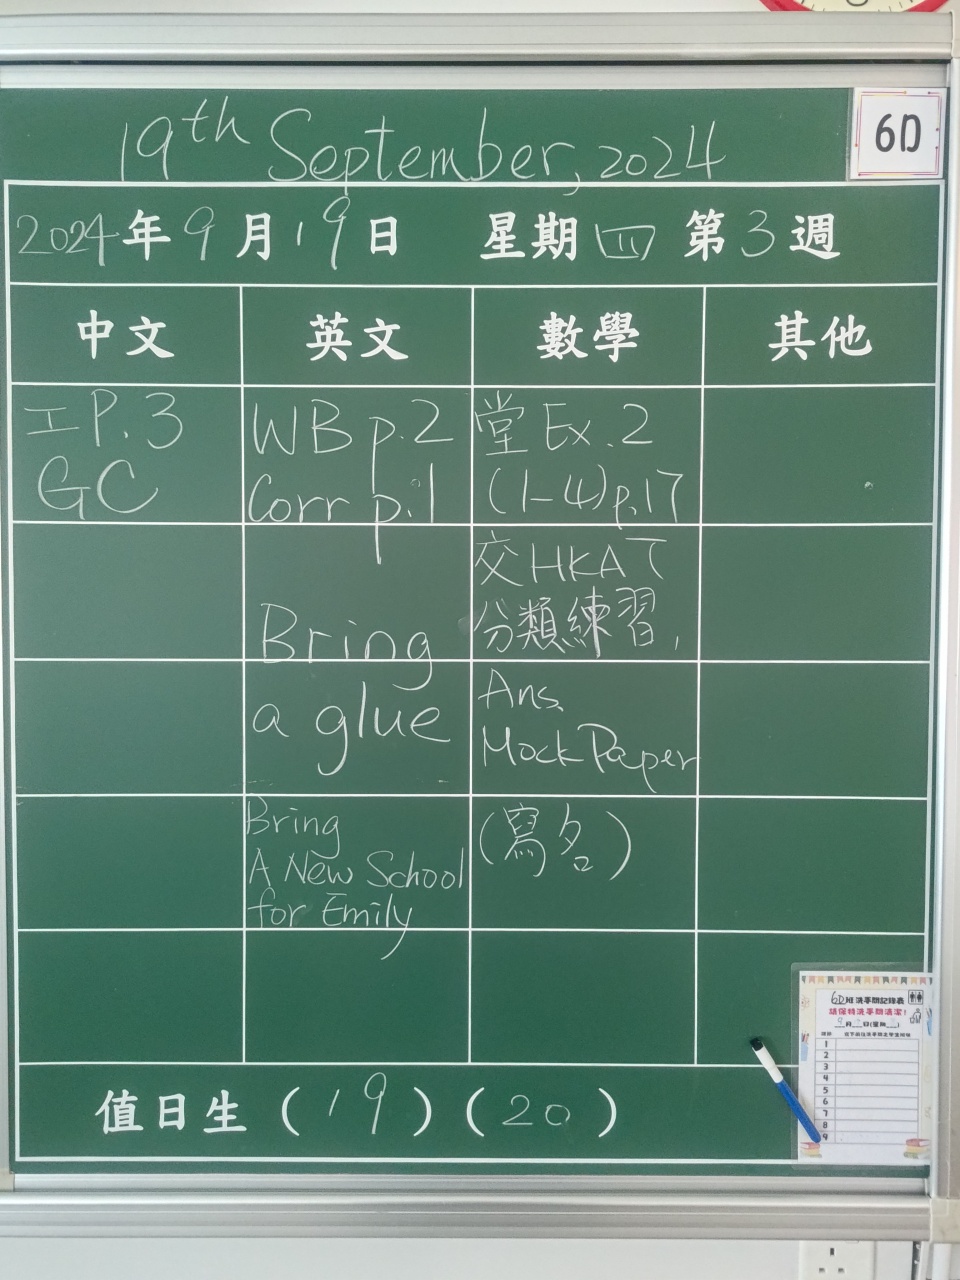 19th September, 2024
6D
2024年9月19日 星期四 第3週
中文 英文 數學 其他
工P.3
GC
WB p.2
Corr p.1
Bring
a glue
Bring
A New School
for Emily
堂 Ex.2
(1-4)p.17
交 HKAT
分類練習,
Ans.
Mock Paper
(寫名)
值日生 (19)(20)
6D班洗手間記錄表
請保持洗手間清潔!
1
2
3
4
5
6
7
8
9